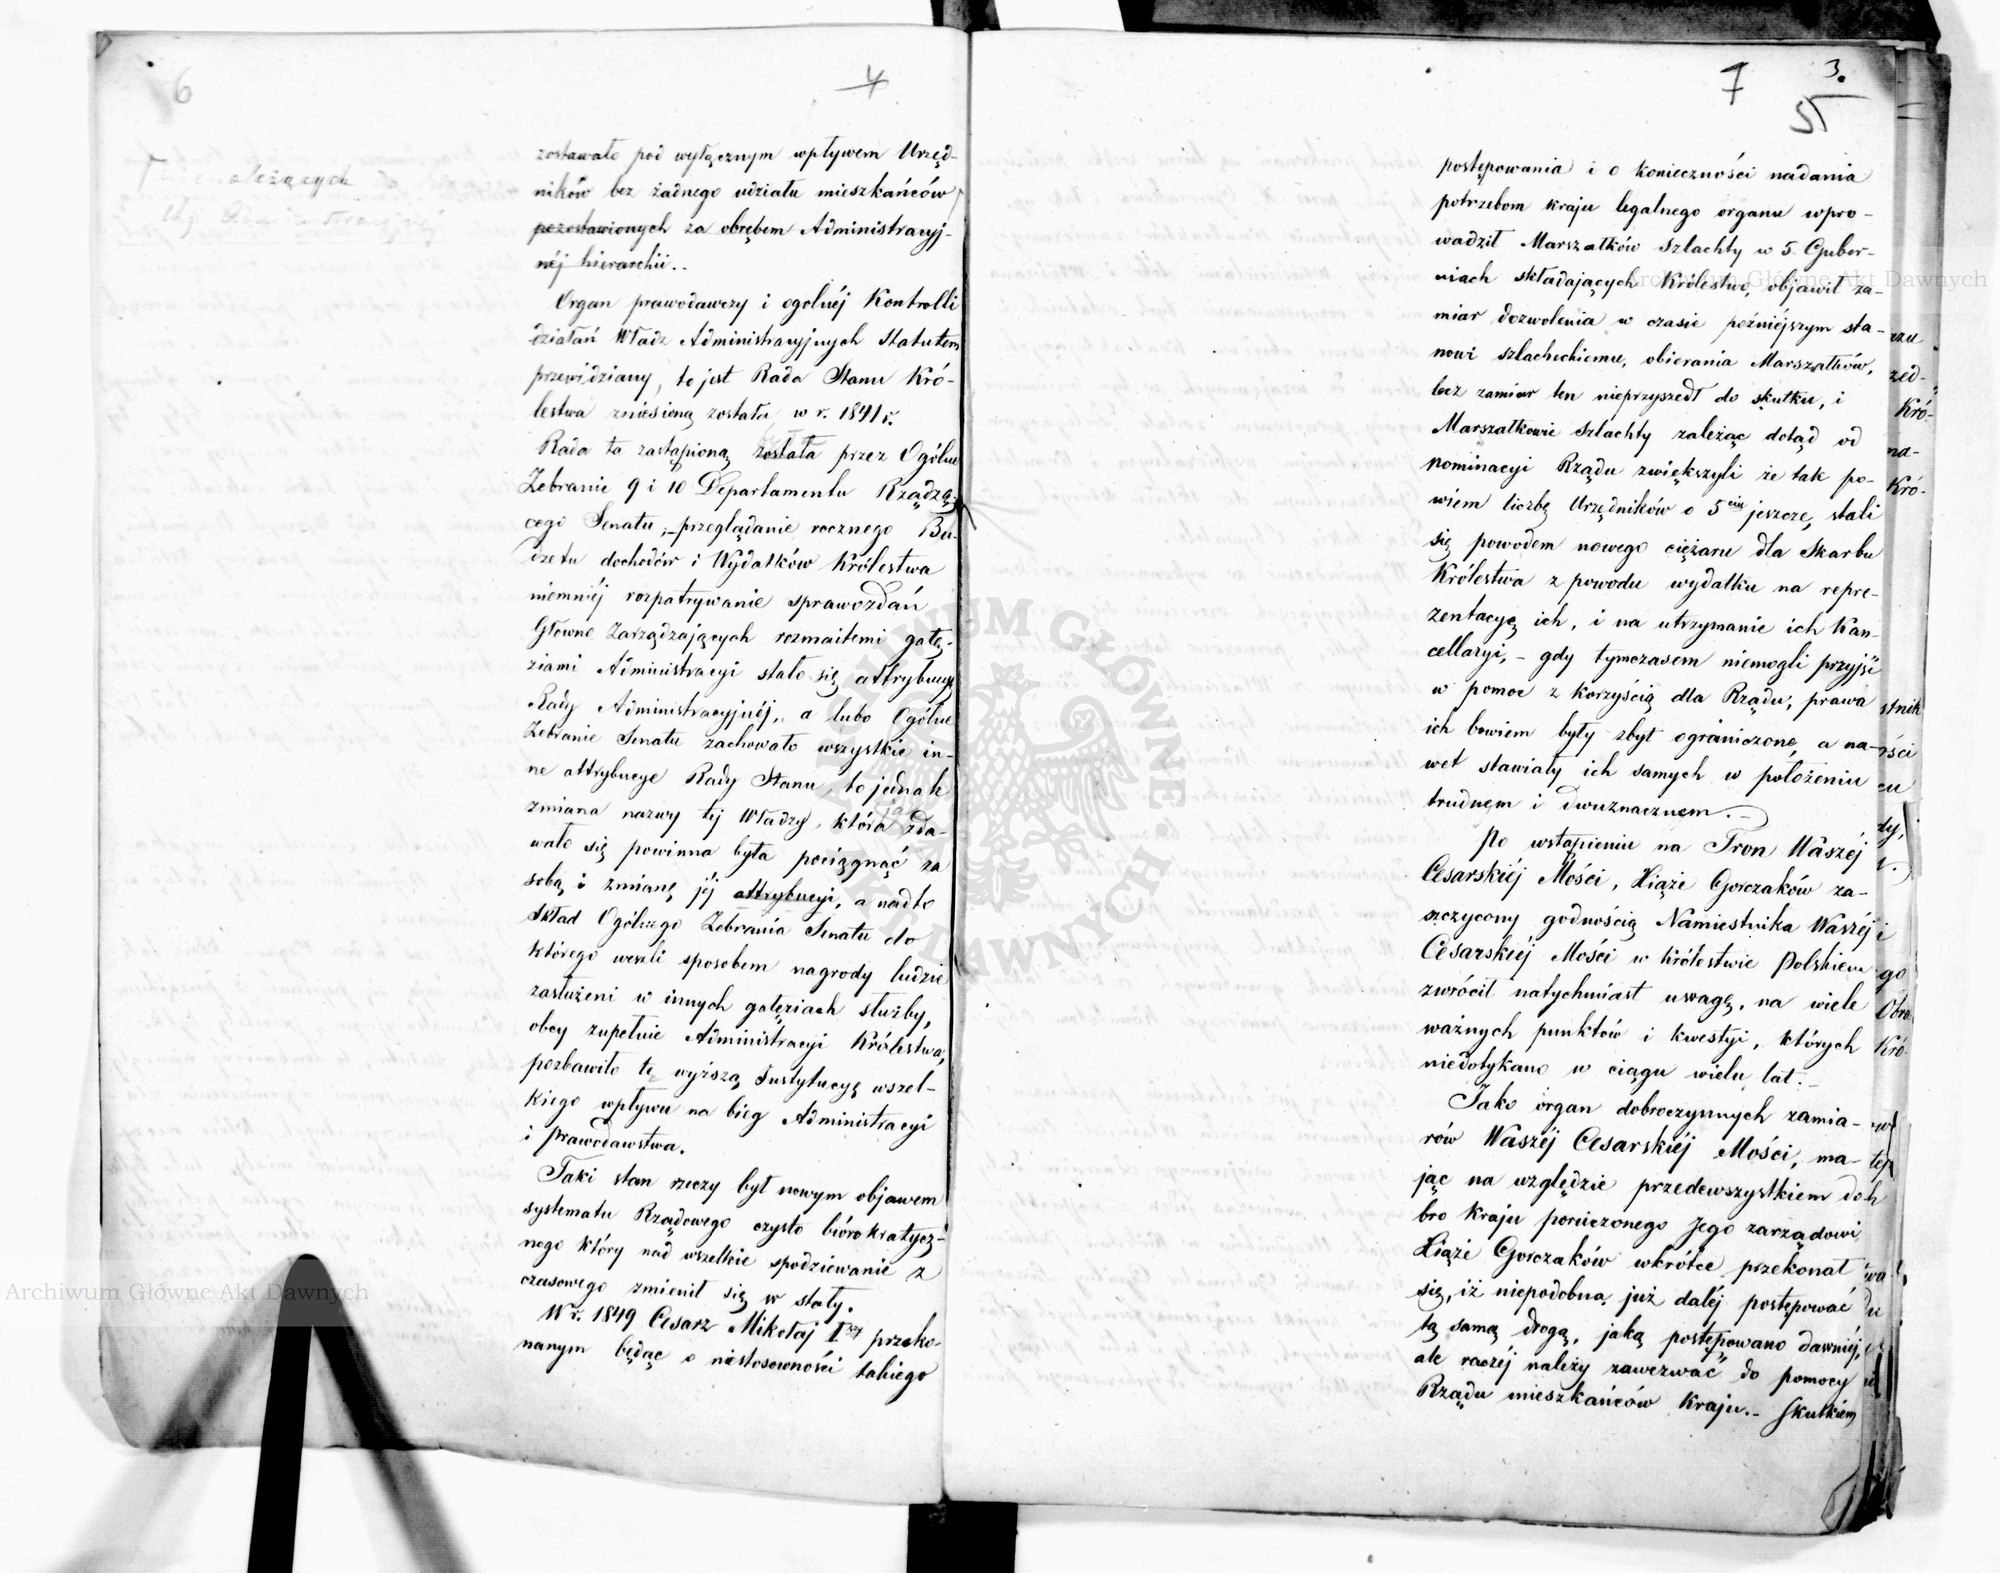 6
4
należących do
zostawało pod wyłącznym wpływem Urzęd-
ników bez żadnego udziału mieszkańców
pozostawionych za obrębem Administracyj-
nej hierarchii.
Organ prawodawczy i ogolnéj Kontrolli
działań Władz Administracyjnych Statutem
przewidziany, to jest Rada Stanu Kró-
lestwa zniesioną została w r. 1841 r.
Rada ta zastąpioną została przez Ogólne
Zebranie 9 i 10 Departamentu Rządzą-
cego Senatu, - przeglądanie rocznego Bu-
dżetu dochodów i Wydatków Królestwa
niemniéj rozpatrywanie sprawozdań
Głowne Zarządzających rozmaitemi gałę-
ziami Administracyi stało się attrybucyą
Rady Administracyjnéj, a lubo Ogólne
Zebranie Senatu zachowało wszystkie in-
ne attrybucye Rady Stanu, to jednak
zmiana nazwy téj Władzy, która zda-
wało się powinna była pociągnąć za
sobą i zmianę jéj attrybucyi, a nadto
skład Ogólnego Zebrania Senatu do
którego weszli sposobem nagrody ludzie
zasłużeni w innych gałęziach służby,
obcy zupełnie Administracyi Królestwa,
pozbawiło tę wyższą Instytucyę wszel-
kiego wpływu na bieg Administracyi
i prawodawstwa.
Taki stan rzeczy był nowym objawem
systematu Rządowego czysto biórokratycz-
nego który nad wszelkie spodziewanie z
czasowego zmienił się w stały.
W r. 1849 Cesarz Mikołaj Iszy przeko-
nanym będąc o niestosowności takiego
7
3.
5
postępowania i o konieczności nadania
potrzebom kraju legalnego organu wpro-
wadził Marszałków Szlachty w 5. Guber-
niach składających Królestwo, objawił za-
miar dozwolenia w czasie poźniéjszym sta-
nowi szlacheckiemu, obierania Marszałków,
lecz zamiar ten nieprzyszedł do skutku, i
Marszałkowie Szlachty zależąc dotąd od
nominacyi Rządu zwiększyli że tak po-
wiem liczbę Urzędników o 5ciu jeszcze, stali
się powodem nowego ciężaru dla Skarbu
Królestwa z powodu wydatku na repre-
zentacyę ich, i na utrzymanie ich Kan-
cellaryi, - gdy tymczasem niemogli przyjść
w pomoc z korzyścią dla Rządu, prawa
ich bowiem były zbyt ograniczone, a na-
wet stawiały ich samych w położeniu
trudnem i dwuznacznem.
Po wstąpieniu na Tron Waszéj
Cesarskiéj Mości, Xiąże Gorczaków za-
szczycony godnością Namiestnika Waszéj
Cesarskiéj Mości w Królestwie Polskiem
zwrócił natychmiast uwagę, na wiele
ważnych punktów i kwestyi, których
niedotykano w ciągu wielu lat.
Jako organ dobroczynnych zamia-
rów Waszéj Cesarskiéj Mości, ma-
jąc na względzie przedewszystkiem do-
bro Kraju poruczonego Jego zarządowi
Xiąże Gorczaków wkrótce przekonał
się, iż niepodobna już daléj postępować
tą samą drogą, jaką postępowano dawniéj,
ale raczéj należy zawezwać do pomocy
Rządu mieszkańców Kraju. - Skutkiem
zed-
Kró-
na-
Kró-
stnik
ości
go
Obra
Kró-
Archiwum Główne Akt Dawnych
Archiwum Główne Akt Dawnych
ARCHIWUM GŁÓWNE AKT DAWNYCH